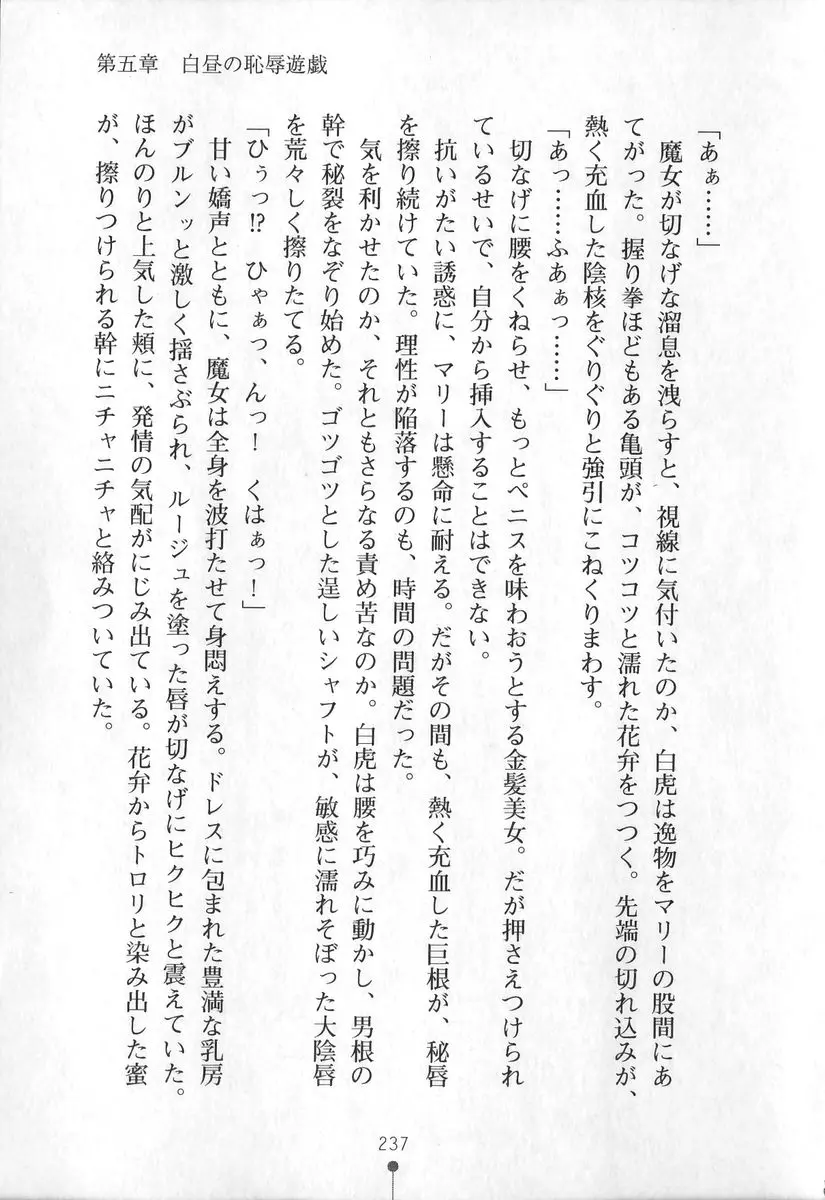 第五章　白昼の恥辱遊戯
「あぁ……」
　魔女が切なげな溜息を洩らすと、視線に気付いたのか、白虎は逸物をマリーの股間にあ
てがった。握り拳ほどもある亀頭が、コツコツと濡れた花弁をつつく。先端の切れ込みが、
熱く充血した陰核をぐりぐりと強引にこねくりまわす。
「あっ……ふあぁっ……」
　切なげに腰をくねらせ、もっとペニスを味わおうとする金髪美女。だが押さえつけられ
ているせいで、自分から挿入することはできない。
　抗いがたい誘惑に、マリーは懸命に耐える。だがその間も、熱く充血した巨根が、秘唇
を擦り続けていた。理性が陥落するのも、時間の問題だった。
　気を利かせたのか、それともさらなる責め苦なのか。白虎は腰を巧みに動かし、男根の
幹で秘裂をなぞり始めた。ゴツゴツとした逞しいシャフトが、敏感に濡れそぼった大陰唇
を荒々しく擦りたてる。
「ひぅっ!?　ひゃぁっ、んっ！　くはぁっ！」
　甘い嬌声とともに、魔女は全身を波打たせて身悶えする。ドレスに包まれた豊満な乳房
がブルンッと激しく揺さぶられ、ルージュを塗った唇が切なげにヒクヒクと震えていた。
ほんのりと上気した頬に、発情の気配がにじみ出ている。花弁からトロリと染み出した蜜
が、擦りつけられる幹にニチャニチャと絡みついていた。
237